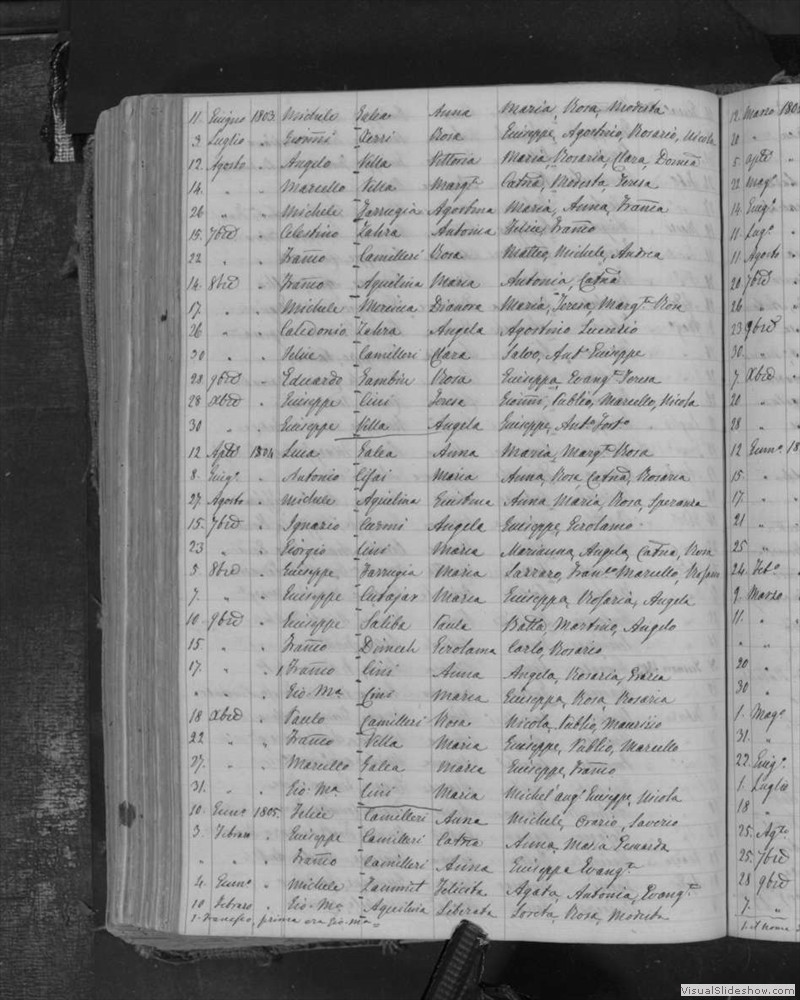 11. Giugno 1803. Michele Galea Anna Maria, Rosa, Modesta
3 Luglio " Giomñi Zerri Rosa Giuseppe, Agostino, Rosario, Nicola
12 Agosto " Angelo Villa Vittoria Maria, Rosaria, Clara, Domca
14. " " Marcello Villa Margta Catna, Modesta, Teresa
26 " " Michele Farrugia Agostina Maria, Anna, Franca
15. 7bre " Celestino Zahra Antonia Felice, Franco
22 " " Franco Camilleri Rosa Matteo, Michele, Andrea
14 8bre " Franco Aquilina Maria Antonia, Catna
17. " " Michele Dianora Maria, Teresa, Margta Rosa
26 " " Calidonio Zahra Angela Agostino
30 " " Felice Camilleri Clara Salvo, Anto Giuseppe
28 9bre " Eduardo Gambin Rosa Giuseppa, Evangta Teresa
28 Xbre " Giuseppe Cini Teresa Giomñi, Publio, Marcello, Nicola
30 " " Giuseppe Villa Angela Giuseppe, Anto
12 Aple 1804 Luca Galea Anna Maria, Margta Rosa
8. Giugo " Antonio Maria Anna, Rosa, Catna, Rosaria
27 Agosto " Michele Aquilina Giustina Anna Maria, Rosa, Speranza
15. 7bre " Ignazio Curmi Angela Giuseppe, Girolamo
23 " " Giorgio Cini Maria Marianna, Angela, Catna, Rosa
5 8bre " Giuseppe Farrugia Maria Lazzaro, Franco Marcello,
7. " " Giuseppe Cutajar Maria Giuseppa, Rosaria, Angela
10. 9bre " Giuseppe Saliba Paula Batta, Martino, Angelo
15 " " Franco Dimech Girolama Carlo, Rosario
17. " 1. Franco Cini Anna Angela, Rosaria, Grazia
" " " Gio. Ma Cini Maria Giuseppa, Rosa, Rosaria
18 Xbre " Paulo Camilleri Rosa Nicola, Publio, Maurizio
22 " " Franco Villa Maria Giuseppe, Publio, Marcello
27. " " Marcello Galea Maria Giuseppe, Franco
31. " " Gio. Ma Cini Maria Michel'ango Giuseppe, Nicola
10. Genno 1805. Felice Camilleri Anna Michele, Orazio, Saverio
3. Febraro " Giuseppe Camilleri Catna Anna, Maria
" " " Franco Camilleri Anna Giuseppa Evangta
4. Genno " Michele Zammit Felicita Agata, Antonia, Evangta
10 Febraro " Gio. Ma Aquilina Liberata Loreta, Rosa, Modesta
1. prima era Gio. Ma
12. Marzo 180
20 " "
5 Aple "
22 Mago
14. Giugo
11 Lugo
11 Agosto
20 7bre
26 "
23 9bre
30. "
7. Xbre
20 "
28 "
12 Genno 18
15. "
17. "
21 "
25 "
24. Febo
9. Marzo
11. "
" "
20 "
30 "
1. Mago
31. "
22. Giugo
1. Luglio
18 "
25. Agto
25. 7bre
28 9bre
7. "
1. il nome
VisualSlideshow.com